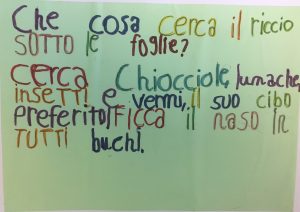 Che cosa cerca il riccio
SOTTO le foglie?
cerca Chiocciole, lumache,
insetti e vermi, il suo cibo
preferito! Ficca il naso in
TUTTI buchi.